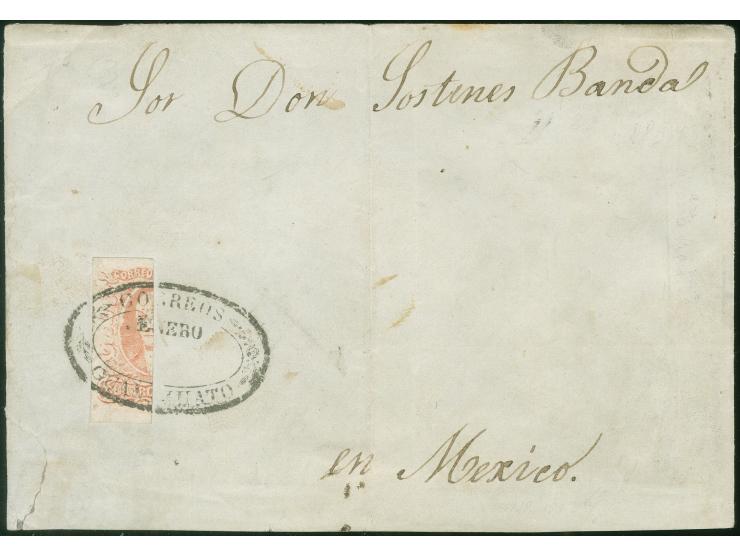 Sor Don Sostenes Banda
CORREO
CORREOS
ENERO
GUANAJUATO
en Mexico.